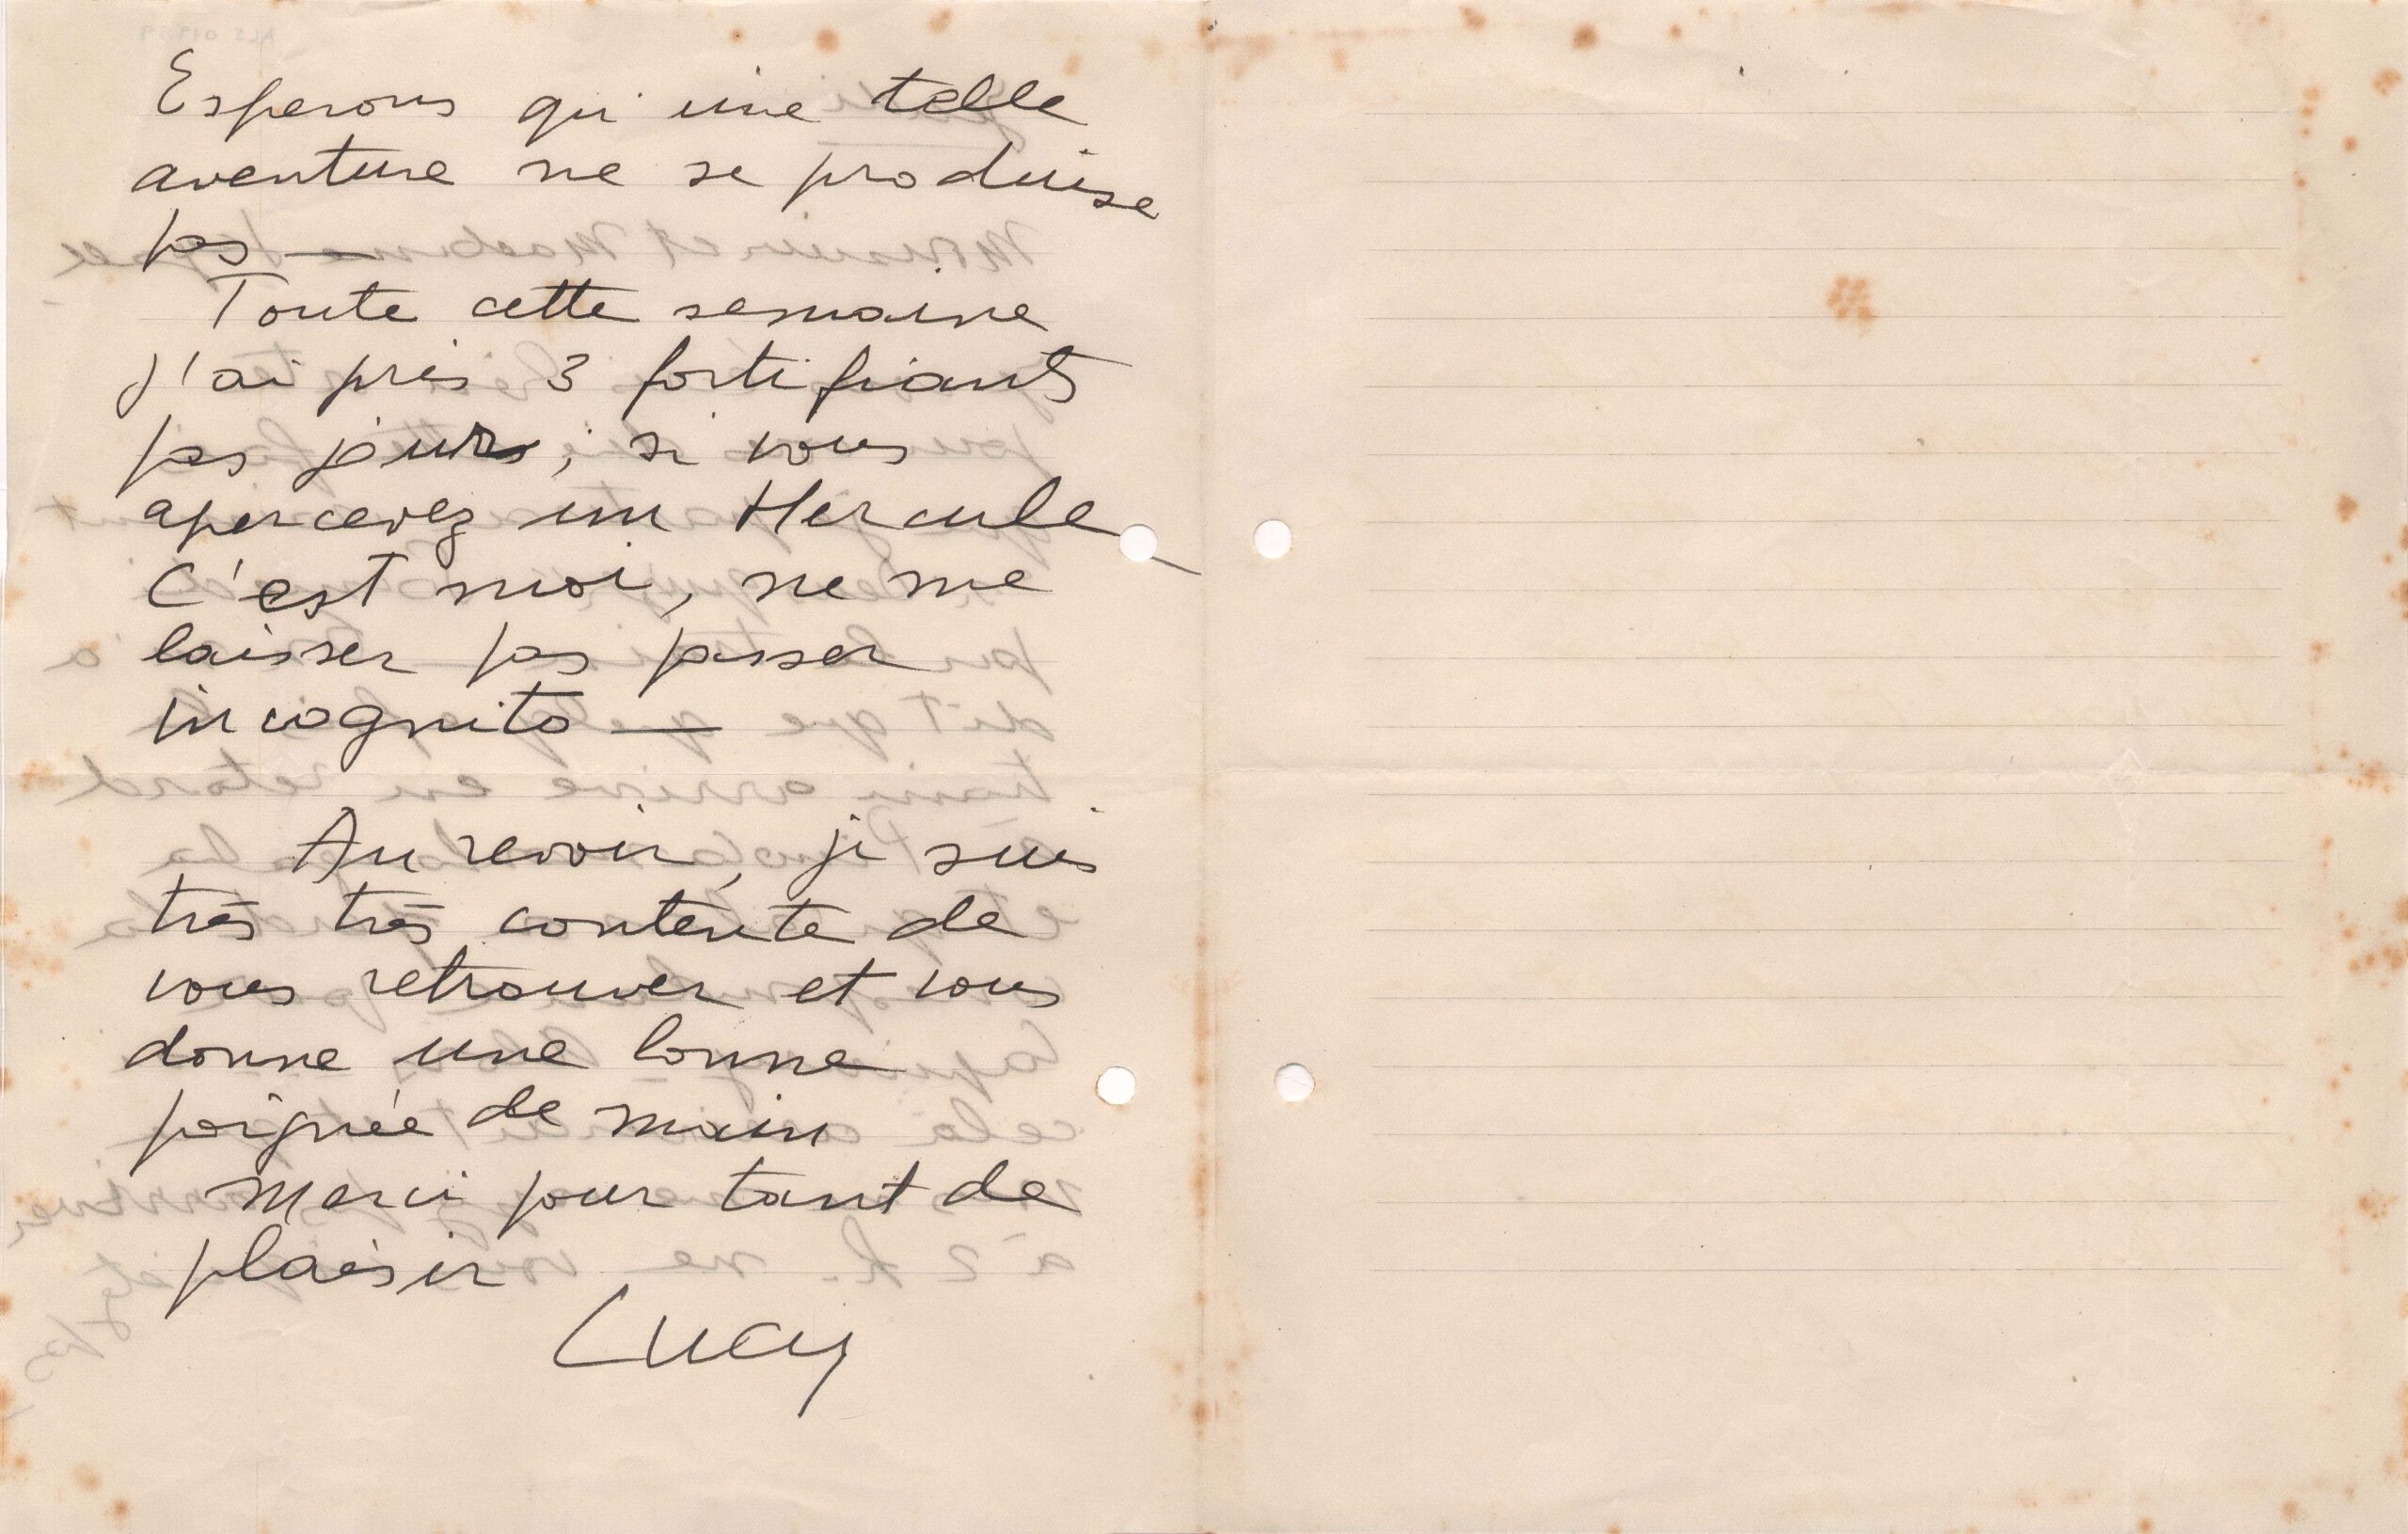 Esperons qu'une telle
aventure ne se produise
pas —
Toute cette semaine
j'ai pris 3 fortifiants
pas jours ; si vous
apercevez un Hercule —
c'est moi, ne me
laisser pas passer
incognito —
Au revoir, je suis
très très contente de
vous retrouver et vous
donne une bonne
poignée de main
Merci pour tant de
plaisir
Lucy